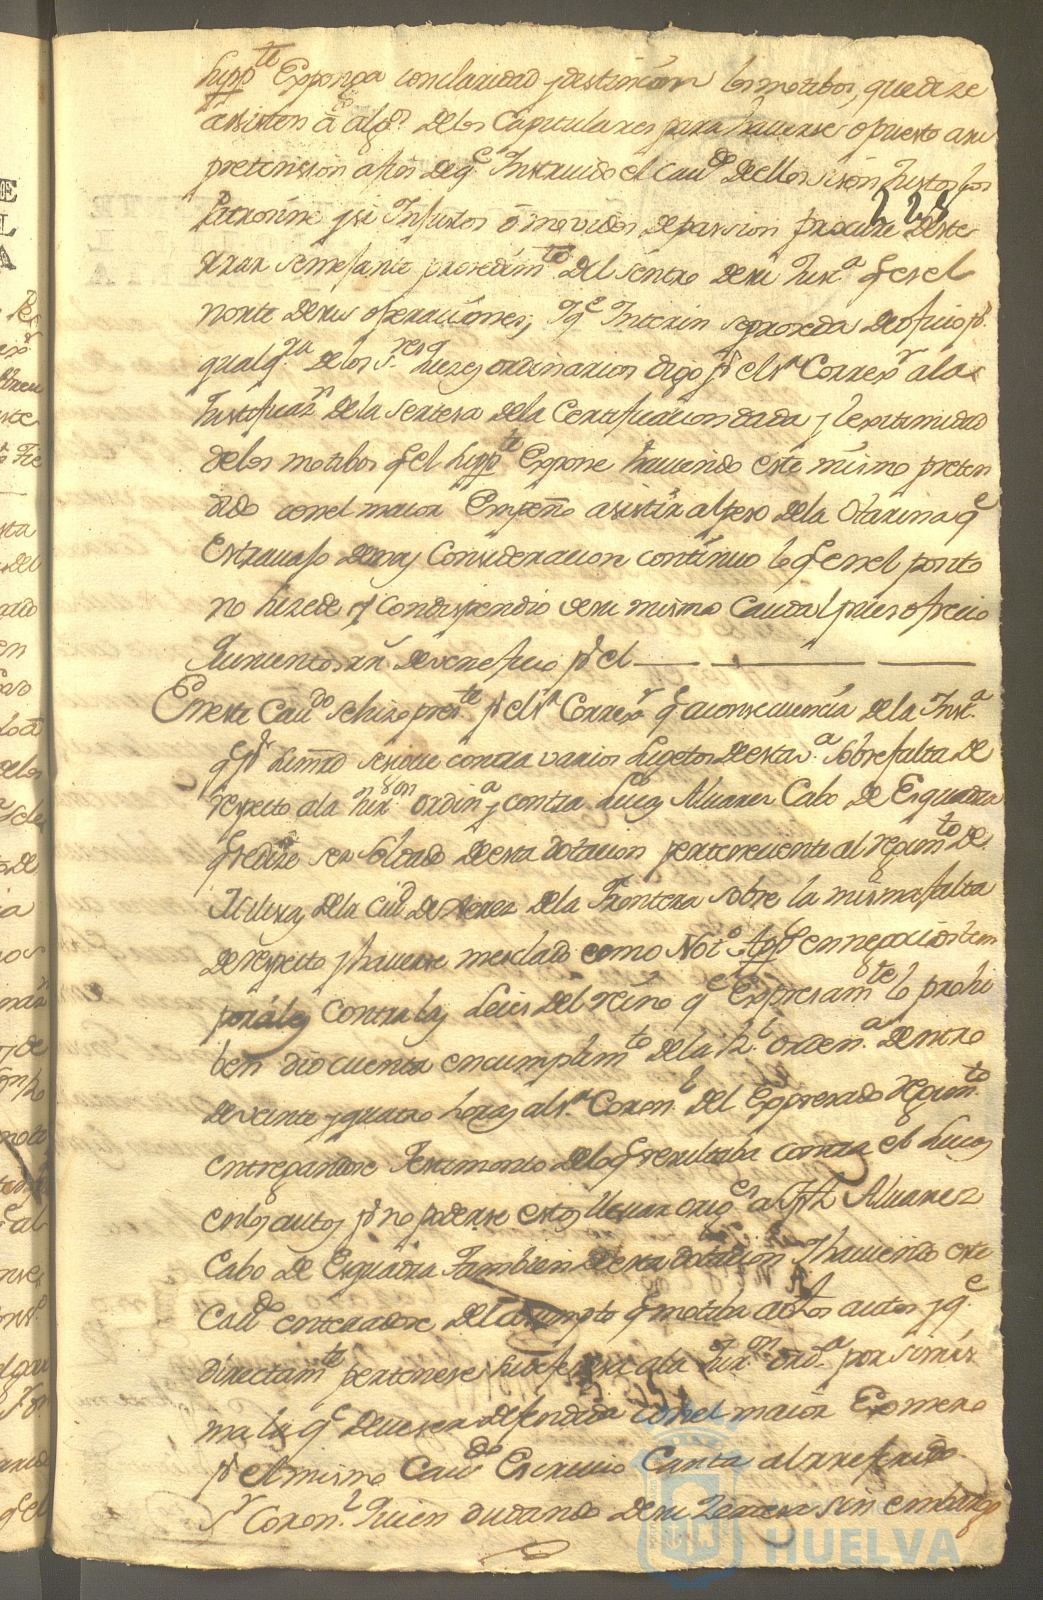 hipp.te Exponga con claridad y destincion los motibos, que dize
assisten â alg.s de los Capitulares para haverse opuesto a su
pretension a fin de q.e Instruido el Cav.do de ellos si son Justos los
Patrosine y si Injustos ô movidos de passion procure deste
223
rrar semejante prosedim.to del sentro de su Jus.a q.e es el
norte de sus operaciones; Y q.e Interin se proseda de ofisio p.r
qualq.ra de los S.res Juezes ordinarios digo p.r el S.r Correx.r a la
Justificaz.n de la serteza de la Certificacion dada y lexitimidad
de los motibos q.e el hipp.te Expone haviendo este mismo preten
dido con el maior Empeño asistir al peso de la Otarina q.e
es travajo de mas Consideracion continuo lo q.e en el ponto
no susede y con dispendio de su mismo Caudal pues ofrecio
Cav.do se hizo pres.te p.r el S.r Correx.r q.e a consecuencia de la Inst.a
contra varios sugetos de esta v.a sobre falta de
respecto a la Jur.on ordin.a y contra Lucas Alvarez Cabo de Esquadra
q.e dize ser soldado de esta dotacion perteneciente al regim.to de
Milicias de la ciu.d de Xerez de la Frontera sobre la misma falta
de respecto y haverse mesclado como Not.o App.co en negocios tem
porales contra las Leies del reino q.e Expresam.te lo prohi
ben dio cuenta en cumplim.to de la R.l orden.a dentro
de veinte y quatro horas al S.r Coron.l del Expresado regim.to
entregandose Testimonio de lo q.e resultaba contra el Lucas
en los autos p.r no poderse estos llevar orig.es a Alvarez
Cabo de Esquadra tambien de esta dotacion Y haviendo este
Cav.do enteradose del asumpto q.e motiba autos y q.e
directam.te pertenese a la Jur.on ord.a por si mis
ma la q.e deve ser defendida con el maior Esmero
p.r el mismo Cav.do Escrivio Carta al rreferido
S.r Coron.l quien dudando de su sin embargo
HUELVA